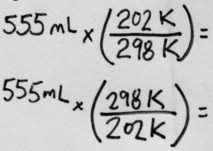 555mL × (202 K / 298 K) =
555mL × (298 K / 202 K) =